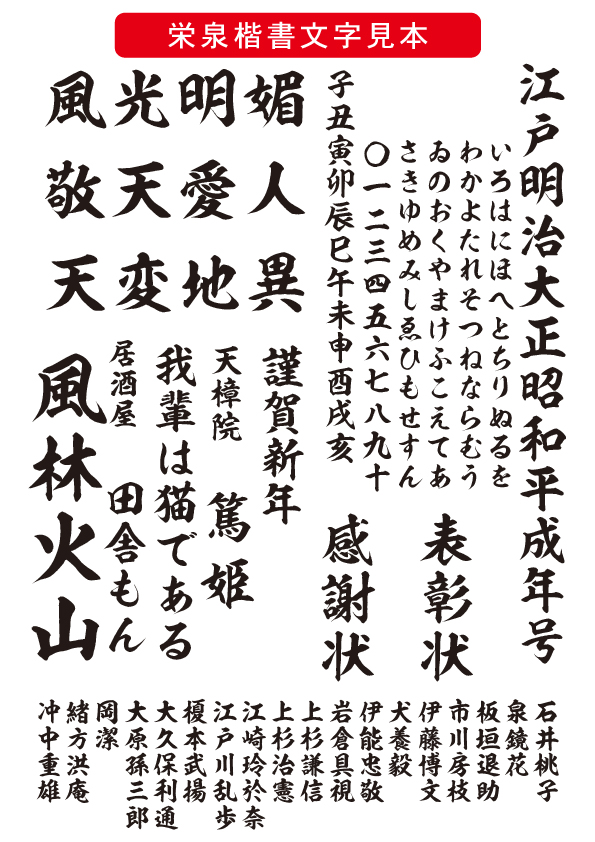 栄泉楷書文字見本
江戸明治大正昭和平成年号
いろはにほへとちりぬるを
わかよたれそつねならむう
ゐのおくやまけふこえてあ
さきゆめみしゑひもせすん
〇一二三四五六七八九十
子丑寅卯辰巳午未申酉戌亥
表彰状
感謝状
媚人異
明愛地
光天変
風敬天
謹賀新年
天樟院
篤姫
我輩は猫である
居酒屋
田舎もん
風林火山
石井桃子
泉鏡花
板垣退助
市川房枝
伊藤博文
犬養毅
伊能忠敬
岩倉具視
上杉謙信
上杉治憲
江崎玲於奈
江戸川乱歩
榎本武揚
大久保利通
大原孫三郎
岡潔
緒方洪庵
冲中重雄